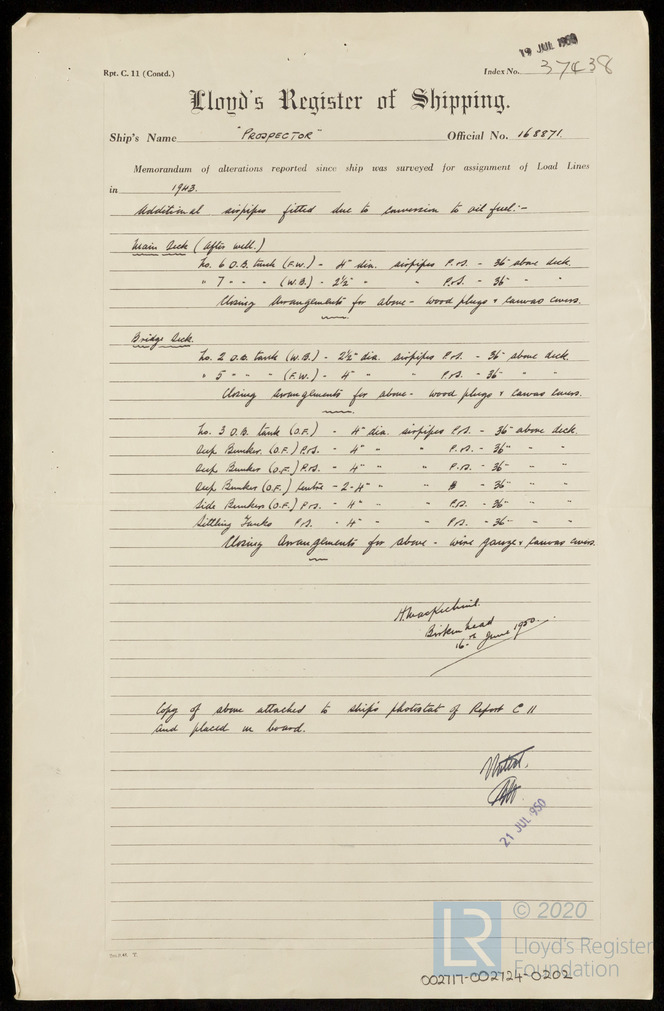 19 JUL 1950
Rpt. C. 11 (Contd.)
Index No. 37438
Lloyd's Register of Shipping.
Ship's Name "PROSPECTOR" Official No. 168871.
Memorandum of alterations reported since ship was surveyed for assignment of Load Lines
in 1943.
Additional airpipes fitted due to conversion to oil fuel:-
Main Deck (After well.)
No. 6 D.B. tank (F.W.) - 4" dia. airpipes P.&S. - 36" above deck.
" 7 " " " (W.B.) - 2½" " " P.&S. - 36" " "
Closing Arrangements for above - wood plugs & canvas covers.
Bridge Deck.
No. 2 D.B. tank (W.B.) - 2½" dia. airpipes P.&S. - 36" above deck.
" 5 " " " (F.W.) - 4" " " P.&S. - 36" " "
Closing Arrangements for above - wood plugs & canvas covers.
No. 3 D.B. tank (O.F.) - 4" dia. airpipes P.&S. - 36" above deck.
Deep Bunker. (O.F.) P.&S. - 4" " " P.&S. - 36" " "
Deep Bunker (O.F.) P.&S. - 4" " " P.&S. - 36" " "
Deep Bunker (O.F.) Centre - 2-4" " " - 36" " "
Side Bunkers (O.F.) P.&S. - 4" " " P.&S. - 36" " "
Settling Tanks P.&S. - 4" " " P.&S. - 36" " "
Closing Arrangements for above - wire gauze & canvas covers.
Birkenhead
16th June 1950.
Copy of above attached to ship's photostat of Report C 11
and placed on board.
Noted.
21 JUL 950
© 2020
LR Lloyd's Register
Foundation
002717-002724-0202